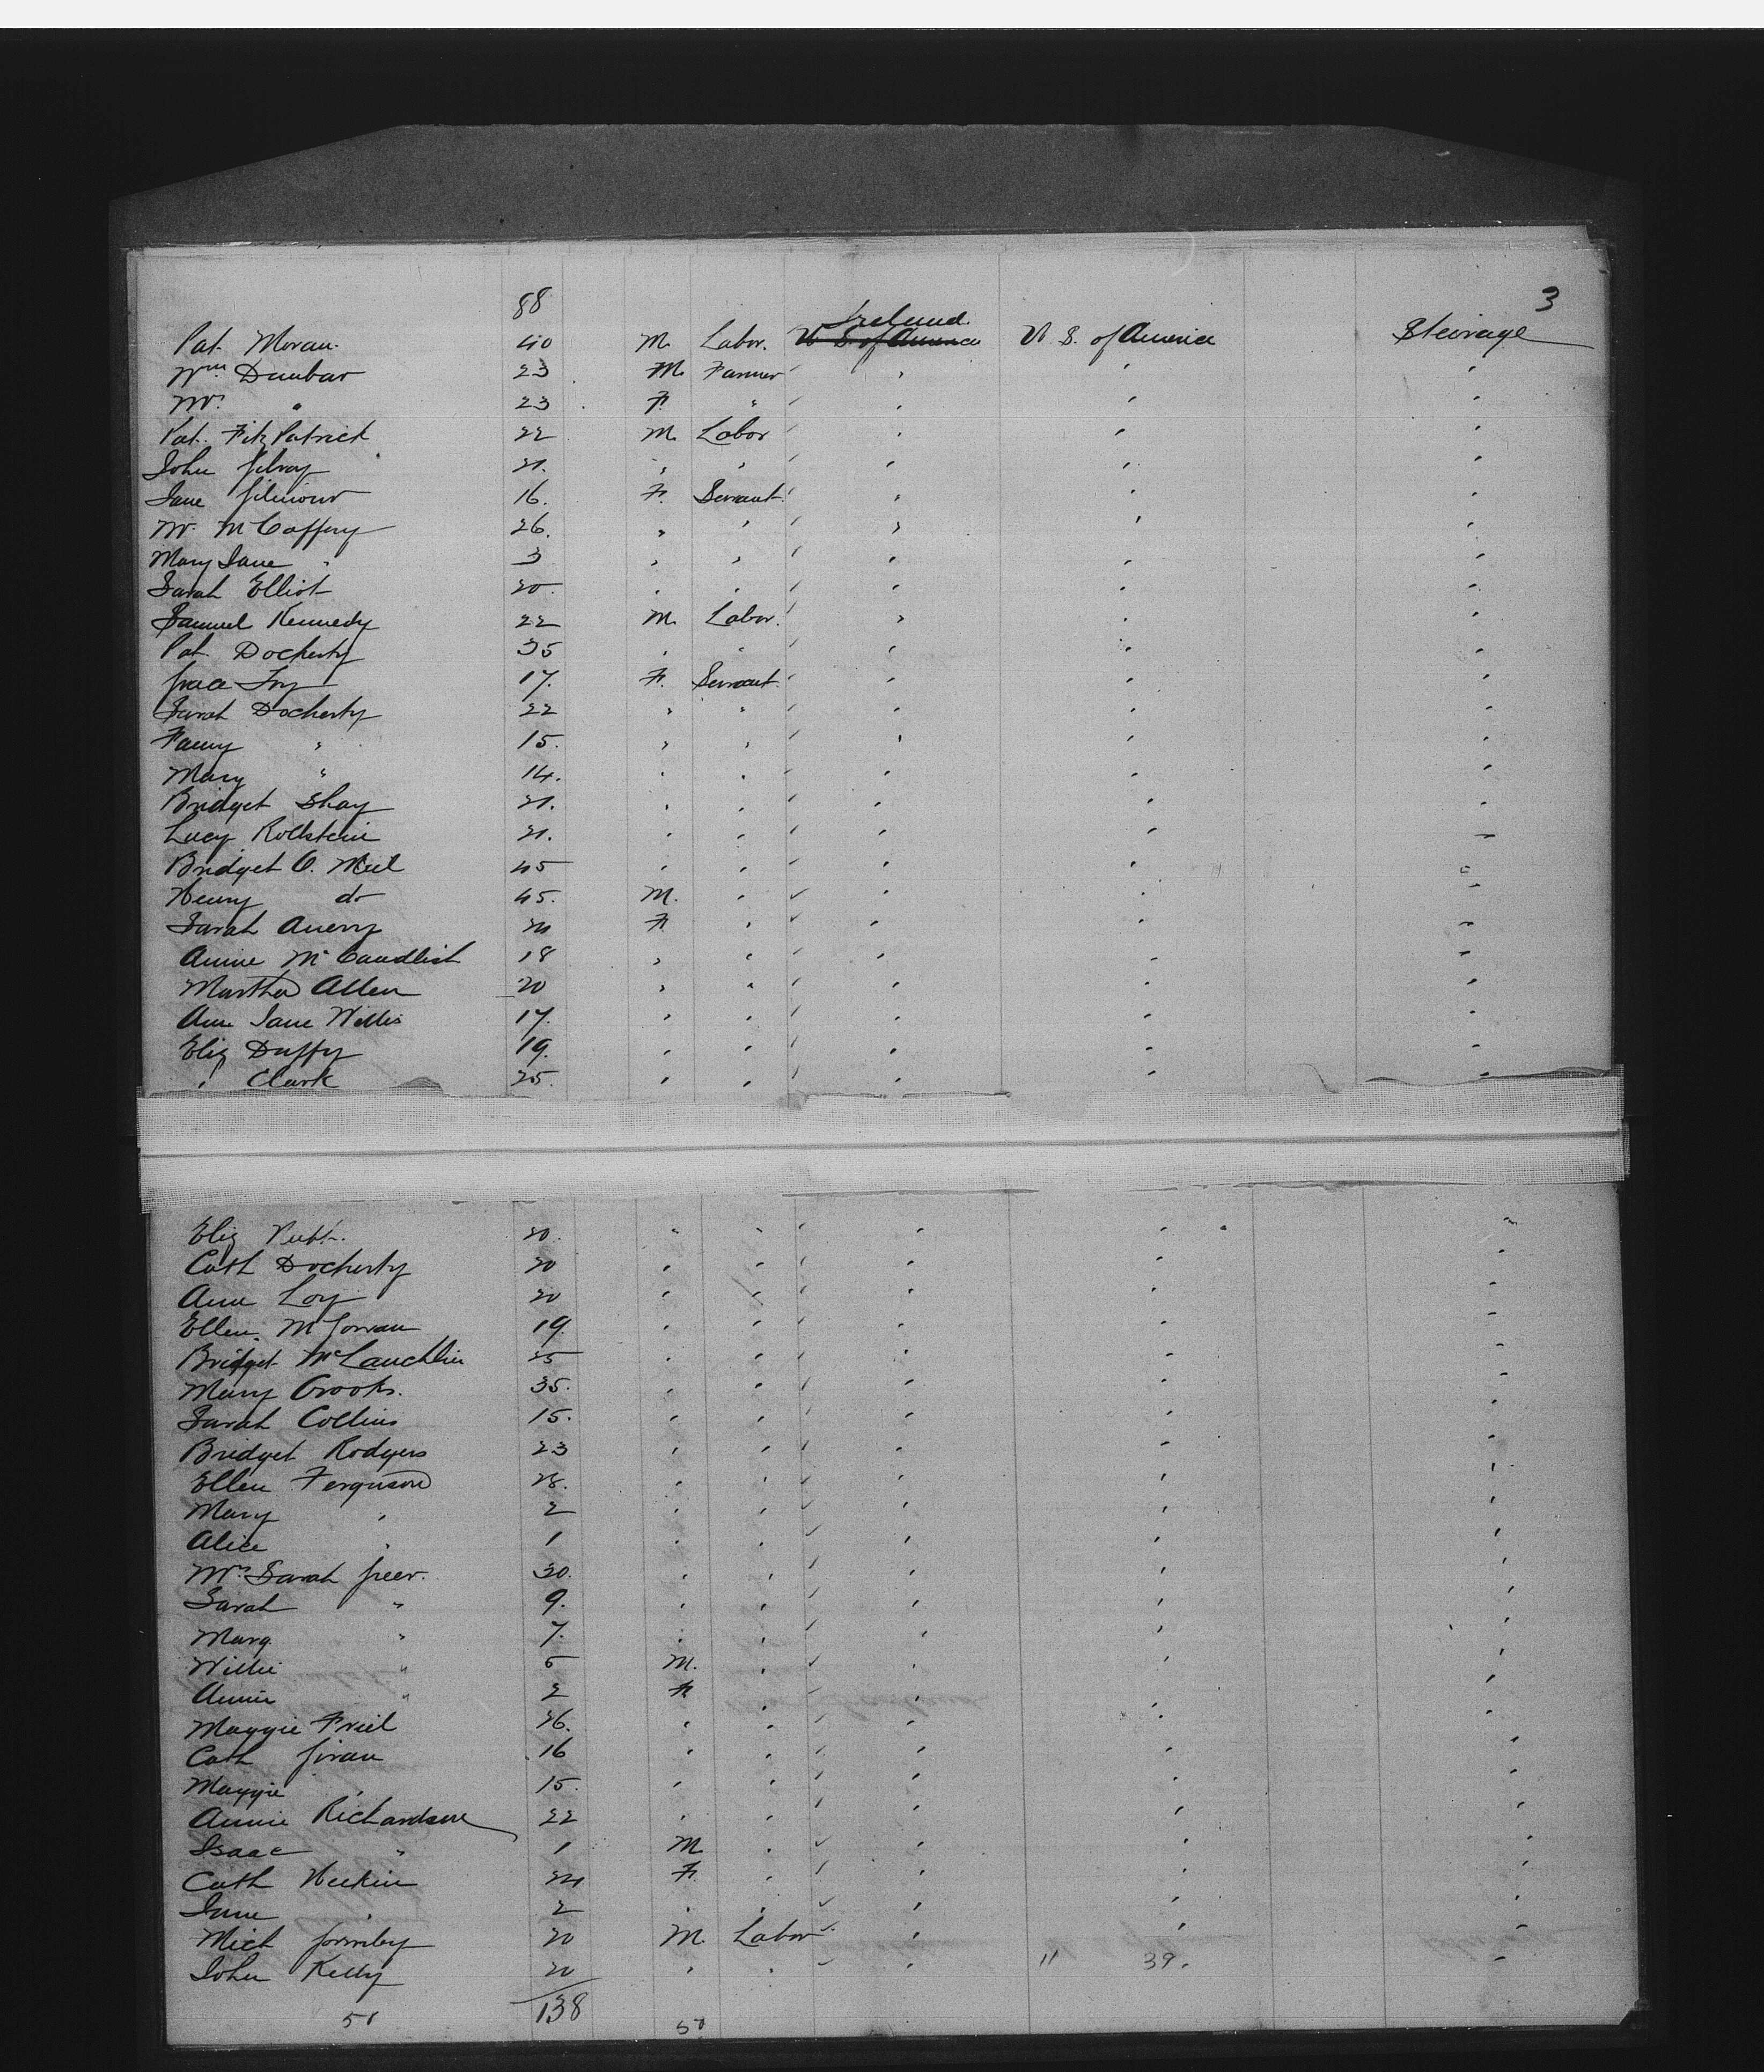 88 3
Ireland
Pat. Moran. 40 M. Labor. U. S. of America U. S. of America Steirage
Wm Dunbar 23 M. Farmer
Mrs " 23 F. "
Pat. FitzPatrick 22 M. Labor
John Gilroy 21. " "
Jane Gilmour 16. F. Servant
Mrs McCaffery 26. " "
Mary Jane " 3 " "
Sarah Elliot 20. " "
Samuel Kennedy 22 M. Labor.
Pat. Docherty 35 " "
Grace 17. F. Servant.
Sarah Docherty 22 " "
Fanny " 15. " "
Mary " 14. " "
Bridget Shay 21. " "
Lucy Rollstein 21. " "
Bridget O. Neil 45 " "
Henry do 45. M. "
Sarah 20 F. "
Annie McCandlish 18 " "
Martha Allen 20 " "
Ann Jane Willis 17. " "
Eliz Duffy 19. " "
" Clark 25. " "
Eliz 20. " "
Cath Docherty 20 " "
Ann Loy 20 " "
Ellen McGowan 19 " "
Bridget McLauchlin 25 " "
Mary Crooks. 35. " "
Sarah Collins 15. " "
Bridget Rodgers 23 " "
Ellen Ferguson 28. " "
Mary " 2 " "
Alice " 1 " "
Mrs Sarah Greer. 30. " "
Sarah " 9. " "
Marg " 7. " "
Willie " 5 M. "
Annie " 2 F. "
Maggie Friel 26. " "
Cath Givan 16 " "
Maggie " 15. " "
Annie Richardson 22 " "
Isaac " 1 M "
Cath 24 F. "
Jane " 2 " "
Mich Gormley 20 M. Labor
John Kelly 20 " " 11 39.
50 138 50